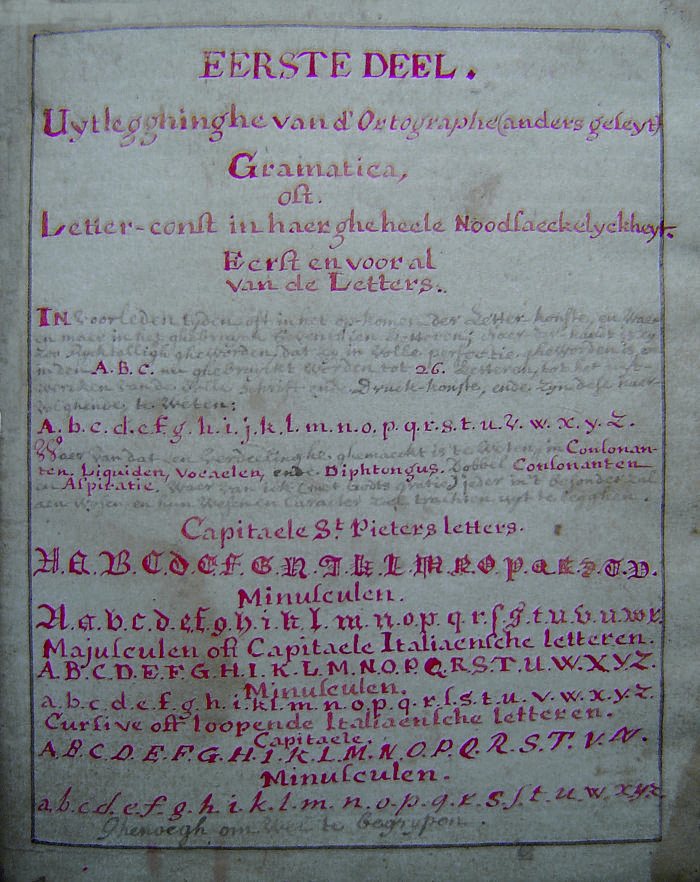 EERSTE DEEL.
Uytlegghinghe van d'Ortographe (anders geseyt)
Gramatica,
oft.
Letter-const in haer gheheele Noodsaeckelyckheyt.
Eerst en vooral
van de Letters.
IN voorleden tyden oft in het op-komen der Letter konste, en Waer
en maer in het ghebruyck
zoo gheworden, dat zy in volle perfectie gheworden
in den A.B.C. nu ghebruyckt worden tot 26. Letteren, tot het
wercken van de volle schrift ende Druck-konste, ende zyn dese naer-
volghende, te Weten:
A. b. c. d. e. f. g. h. i. j. k. l. m. n. o. p. q. r. s. t. u. v. w. x. y. z.
Waer van dat een Verdeelinghe ghemaeckt is te Weten, in Consonan-
ten, Liquiden, Vocaelen, ende Diphtongus. Dobbel Consonanten
en Aspiratie. Waer van ick (met Godts gratie) ieder in't besonder zal
aen Wysen en hun Wesen en Caracter zien trachten uyt te legghen.
Capitaele St. Pieters letters.
A. A. B. C. D. E. F. G. H. I. K. L. M. N. O. P. Q. R. S. T. V.
Minusculen.
A. a. b. c. d. e. f. g. h. i. k. l. m. n. o. p. q. r. s. s. t. u. v. u. w x.
Majusculen oft Capitaele Italiaensche letteren.
A. B. C. D. E. F. G. H. I. K. L. M. N. O. P. Q. R. S. T. U. W. X. Y. Z.
Minusculen.
a. b. c. d. e. f. g. h. i. k. l. m. n. o. p. q. r. s. s. t. u. v. w. x. y. z.
Cursive oft loopende Italiaensche letteren.
Capitaele.
A. B. C. D. E. F. G. H. I. K. L. M. N. O. P. Q. R. S. T. V. W.
Minusculen.
a. b. c. d. e. f. g. h. i. k. l. m. n. o. p. q. r. s. s. t. u. w. x y z.
Ghenoegh om Wel te begrypen.